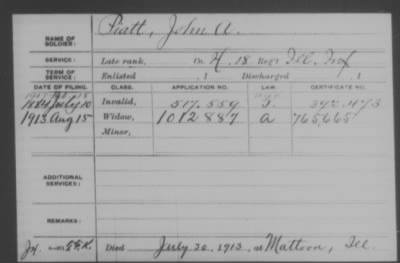 NAME OF SOLDIER: Piatt, John A.
SERVICE: Late rank, Co. H, 18 Reg't Ill. Inf
TERM OF SERVICE: Enlisted , 1 Discharged , 1
DATE OF FILING. CLASS. APPLICATION NO. LAW. CERTIFICATE NO.
1884 July 10 Invalid, 517.559
1913 Aug 15 Widow, 1012887 a 765,665
Minor,
ADDITIONAL SERVICES:
REMARKS:
Died July 30, 1913, at Mattoon, Ill.